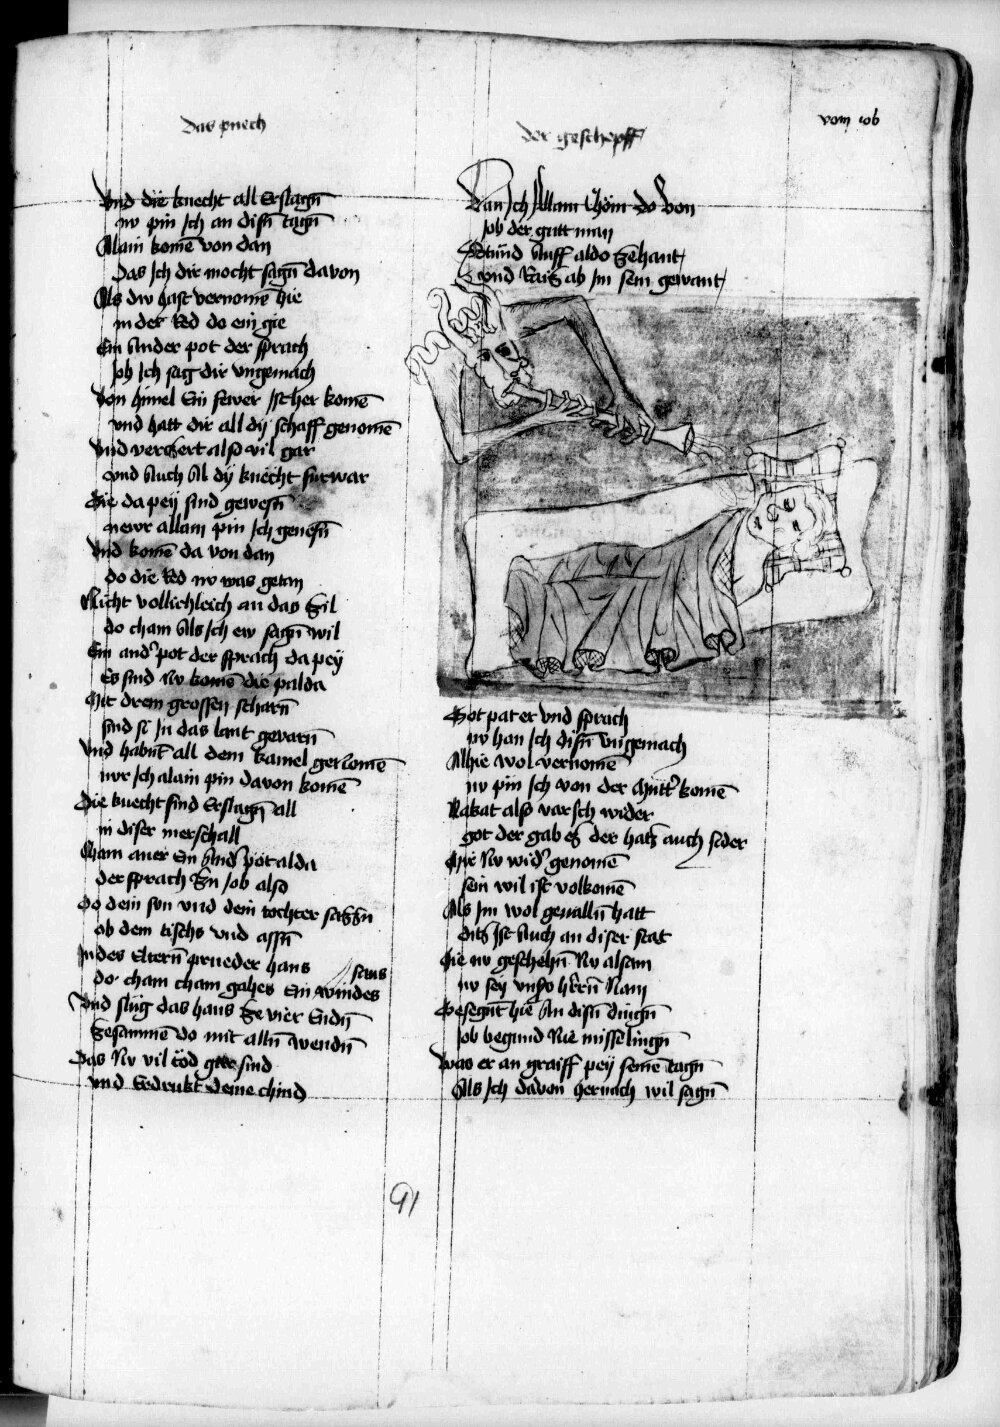 Das puech
der geschepff
vom iob
Vnd die knecht all Erslagn̄
nv pin Ich an disn̄ tagn̄
Alain komē von dan
Das Ich dir mocht sagn̄ davon
Als dw hast vernomē hie
in der Red do ein gie
Ein Ander pot der sprach
Job Ich sag dir vngemach
Von himel Ein fewer Ist her komē
vnd hatt dir all dÿ schaff genomē
Vnd verhert also vil gar
vnd Auch Al dÿ knecht furwar
Die da peÿ sind gewesn̄
newr allain pin Ich genesn̄
Vnd komē da von dan
do die Red nv was getan
Nicht volliehleich an das Zil
do cham Als Ich ew sagn̄ wil
Ein and' pot der sprach da peÿ
Es sind Nv komē die palda
Mit drein grossen scharn̄
sind si In das lant gevarn̄
Vnd habnt̄ all dein kamel genomē
nvr Ich alain pin davon komē
Die knecht sind Erslagn̄ all
in diser merschall
Cham aver Ein And' pot alda
der sprach Zu Job also
Do dein son vnd dein tochter sassn̄
ob dem tischs vnd assn̄
In des Eltern̄ prueder haus
do cham cham gahes Ein windes saus
Vnd slug das haus Ze vier Endn̄
Zesammē do mit alln̄ wendn̄
Das Nv vil töd sind
vnd Zedrukt deine chind
Dan Ich Allain Chöm do von
Job der gutt man
Stund Auff aldo Zehant
vnd Rais ab Im sein gewant
Got pater vnd sprach
nv han Ich disn̄ vngemach
Alhie wol vernomē
nv pin Ich von der Mutt' komē
Nakat also var Ich wider
got der gab es der hats auch sider
Mir Nv wid' genomē
sein wil ist volkomē
Als Im wol geualln̄ hatt
dits Ist Auch an diser stat
Hie nv geschehn̄ Nv alsam
nv seÿ vnsers herrn̄ Nam
Gesegnt hie An disn̄ dingn̄
Job begund Nie misselingn̄
Was er an graiff peÿ seinē tagn̄
Als Ich davon hernach wil sagn̄
91